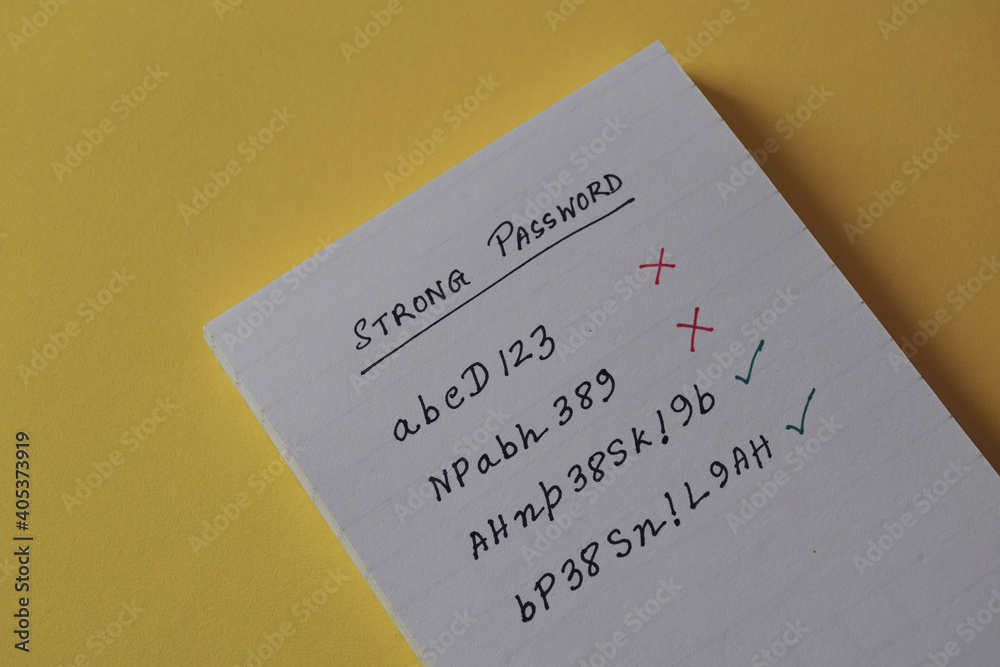 STRONG PASSWORD
abcD123 ×
NPabh389 ×
AHnp38Sk!9b ✓
bP38Sn!L9AH ✓
Adobe Stock | #405373919
Adobe Stock